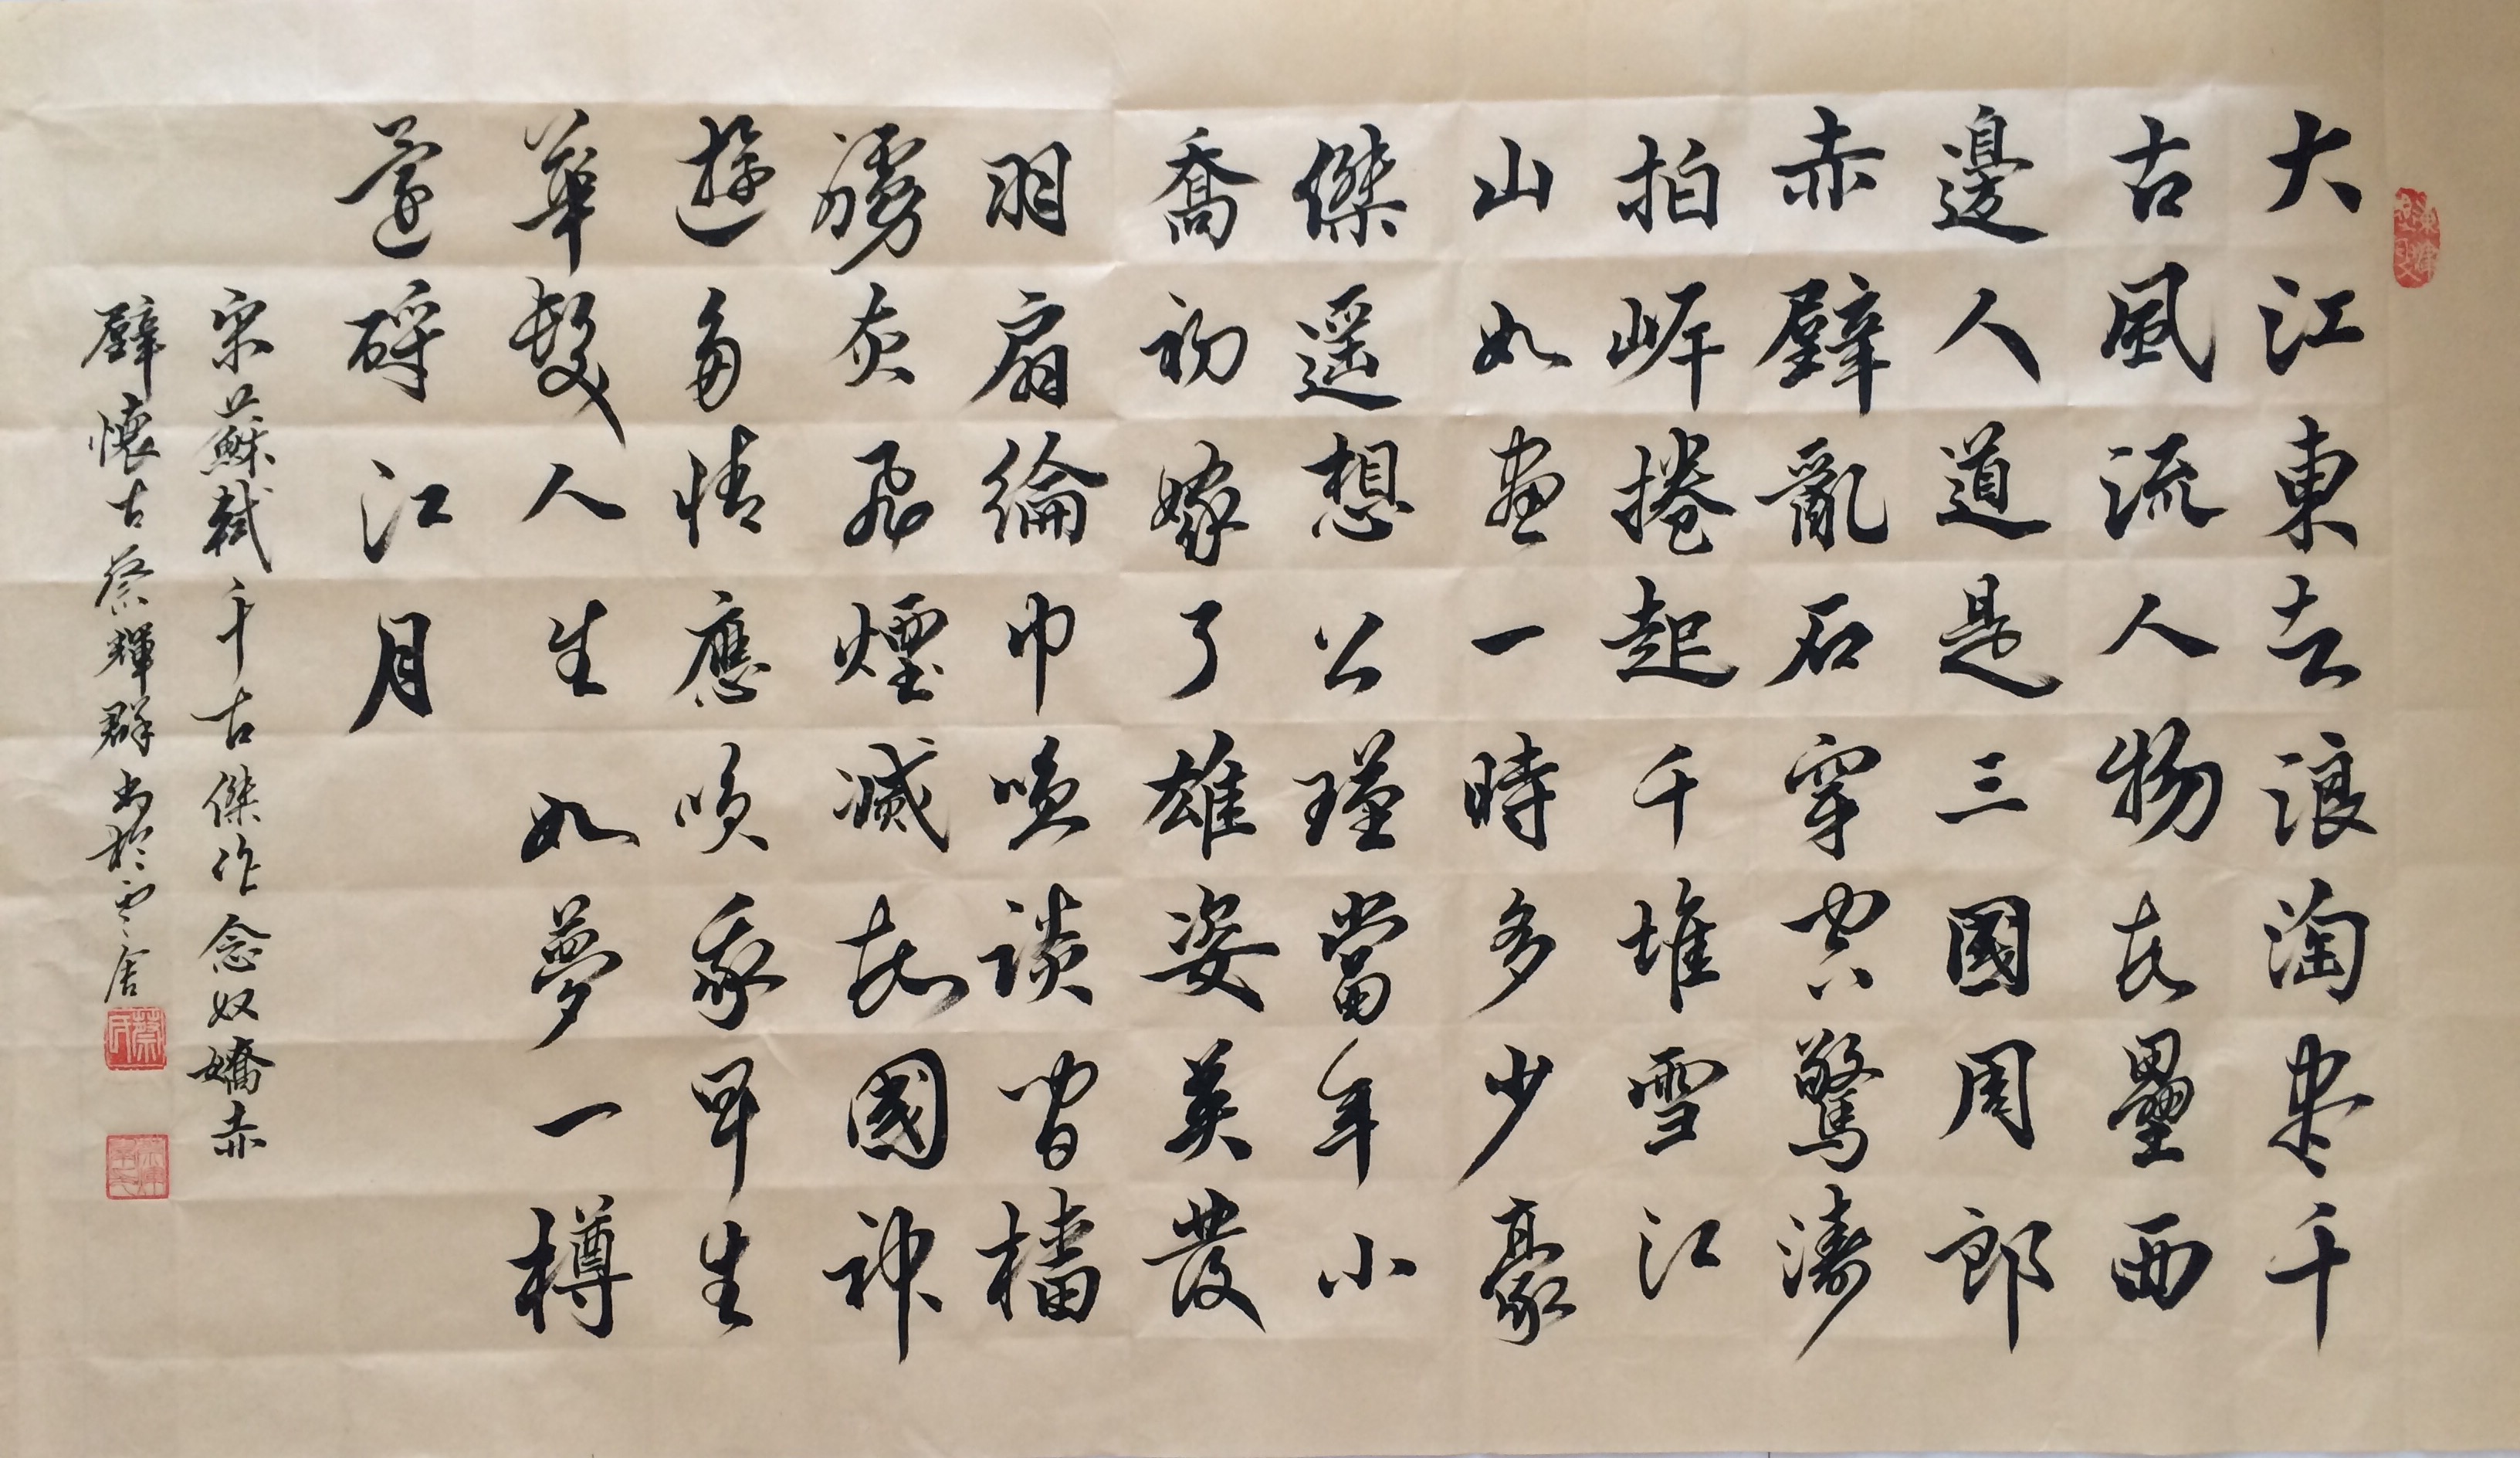 大江東去浪淘盡千
古風流人物故壘西
邊人道是三國周郎
赤壁亂石穿空驚濤
拍岸捲起千堆雪江
山如畫一時多少豪
傑遥想公瑾當年小
喬初嫁了雄姿英發
羽扇綸巾笑談間檣
艣灰飛煙滅故國神
遊多情應笑我早生
華髮人生如夢一樽
還酹江月
宋蘇軾千古傑作念奴嬌赤
壁懷古蔡輝群書於雲舍
蔡氏